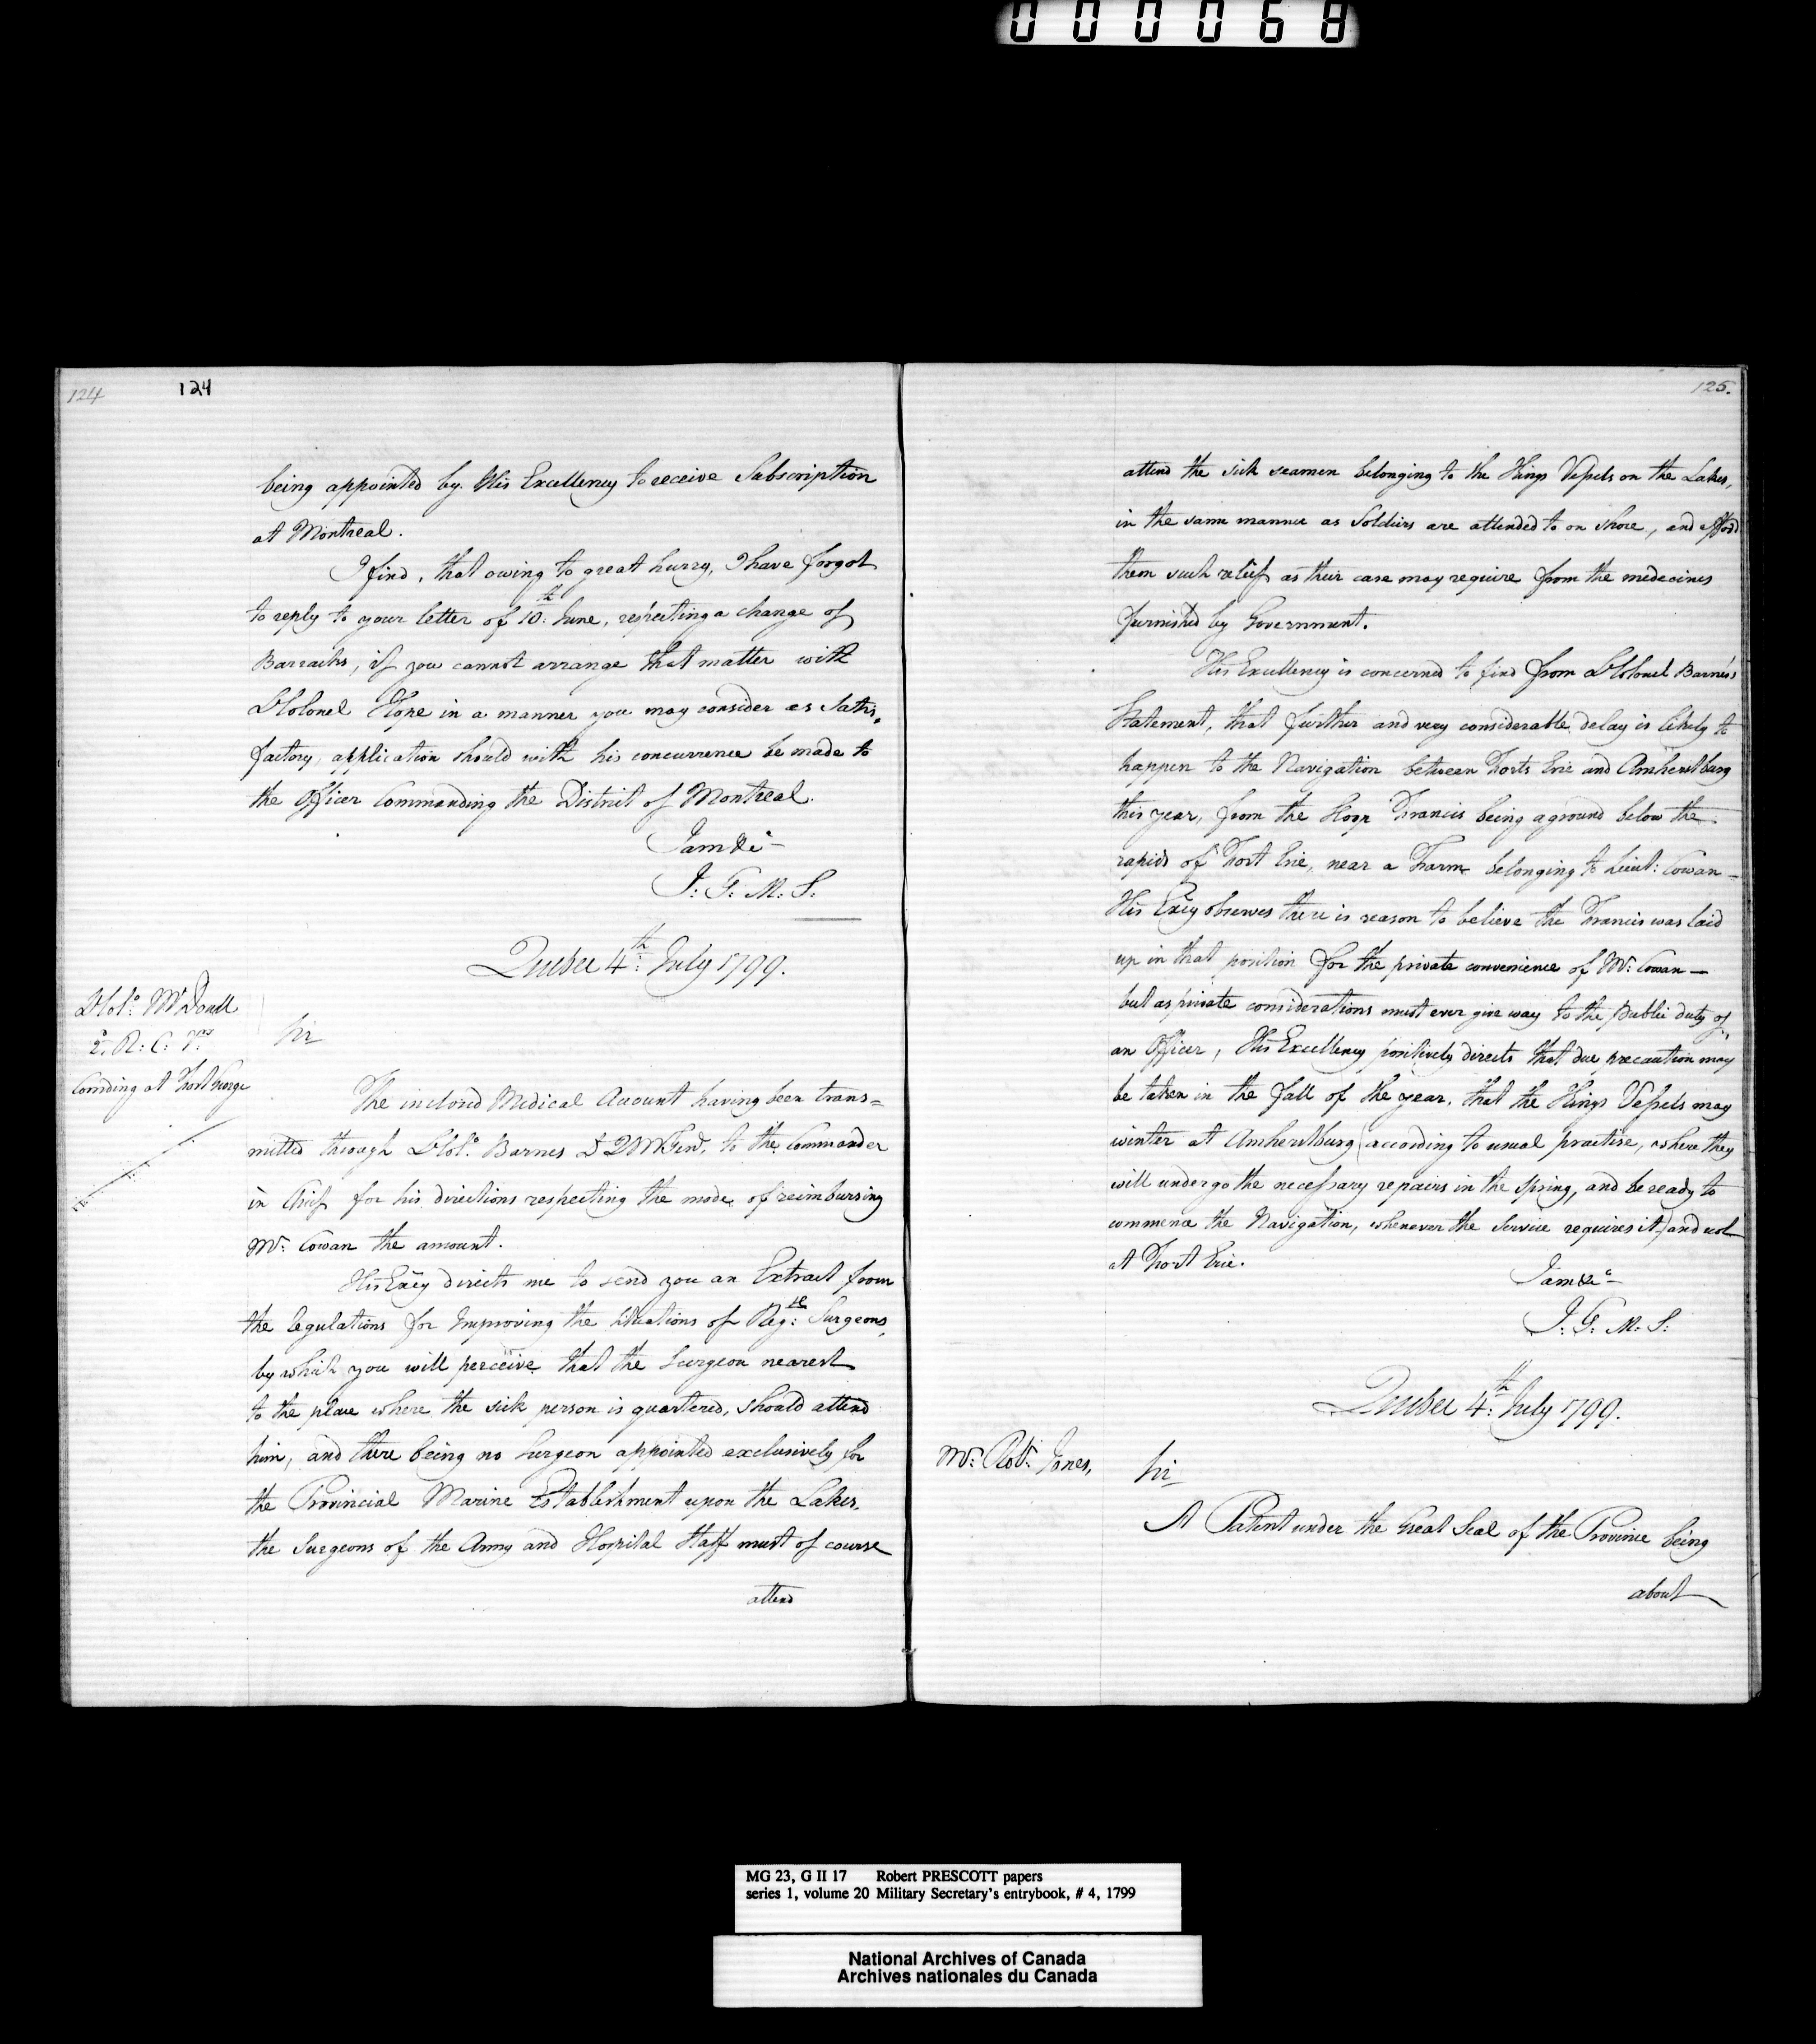 000068
124
124
being appointed by His Excellency to receive Subscription
at Montreal.
I find, that owing to great hurry, I have forgot
to reply to your letter of 10th: June, respecting a change of
Barracks, if you cannot arrange that matter with
Lt Colonel Hope in a manner you may consider as Satis,
factory, application should with his concurrence be made to
the Officer Commanding the District of Montreal.
I am &c
J. G. M. S.
Quebec 4th: July 1799.
Lt Col: McDonell
2. R. C. Vrs
Comding at Fort George
Sir
The inclosed Medical Account having been trans=
mitted through Lt Col: Barnes D Q M Genl, to the Commander
in Chief for his directions respecting the mode of reimbursing
Mr: Cowan the amount.
His Excy directs me to send you an Extract from
the regulations for Improving the Situations of Regtl: Surgeons,
by which you will perceive that the Surgeon nearest
to the place where the sick person is quartered, should attend
him, and there being no Surgeon appointed exclusively for
the Provincial Marine Establishment upon the Lakes,
the Surgeons of the Army and Hospital Staff must of course
attend
125.
attend the sick seamen belonging to the Kings Vessels on the Lakes,
in the same manner as Soldiers are attended to on Shore, and afford
them such relief as their case may require from the medecines
furnished by Government.
His Excellency is concerned to find from Lt Colonel Barnes's
Statement, that further and very considerable delay is likely to
happen to the Navigation between Forts Erie and Amherstburg
this year, from the Sloop Francis being aground below the
rapids of Fort Erie, near a Farm belonging to Lieut: Cowan -
His Excy observes there is reason to believe the Francis was laid
up in that position for the private convenience of Mr: Cowan -
but as private considerations must ever give way to the Public duty of
an Officer, His Excellency positively directs that due precaution may
be taken in the fall of the year, that the Kings Vessels may
winter at Amherstburg (according to usual practise, where they
will undergo the necessary repairs in the Spring, and be ready to
commence the Navigation, whenever the Service requires it) and not
at Fort Erie.
I am &c
J. G. M. S.
Quebec 4th: July 1799.
Mr: Robt: Jones,
Sir
A Patent under the Great Seal of the Province being
about
MG 23, G II 17 Robert PRESCOTT papers
series 1, volume 20 Military Secretary's entrybook, # 4, 1799
National Archives of Canada
Archives nationales du Canada